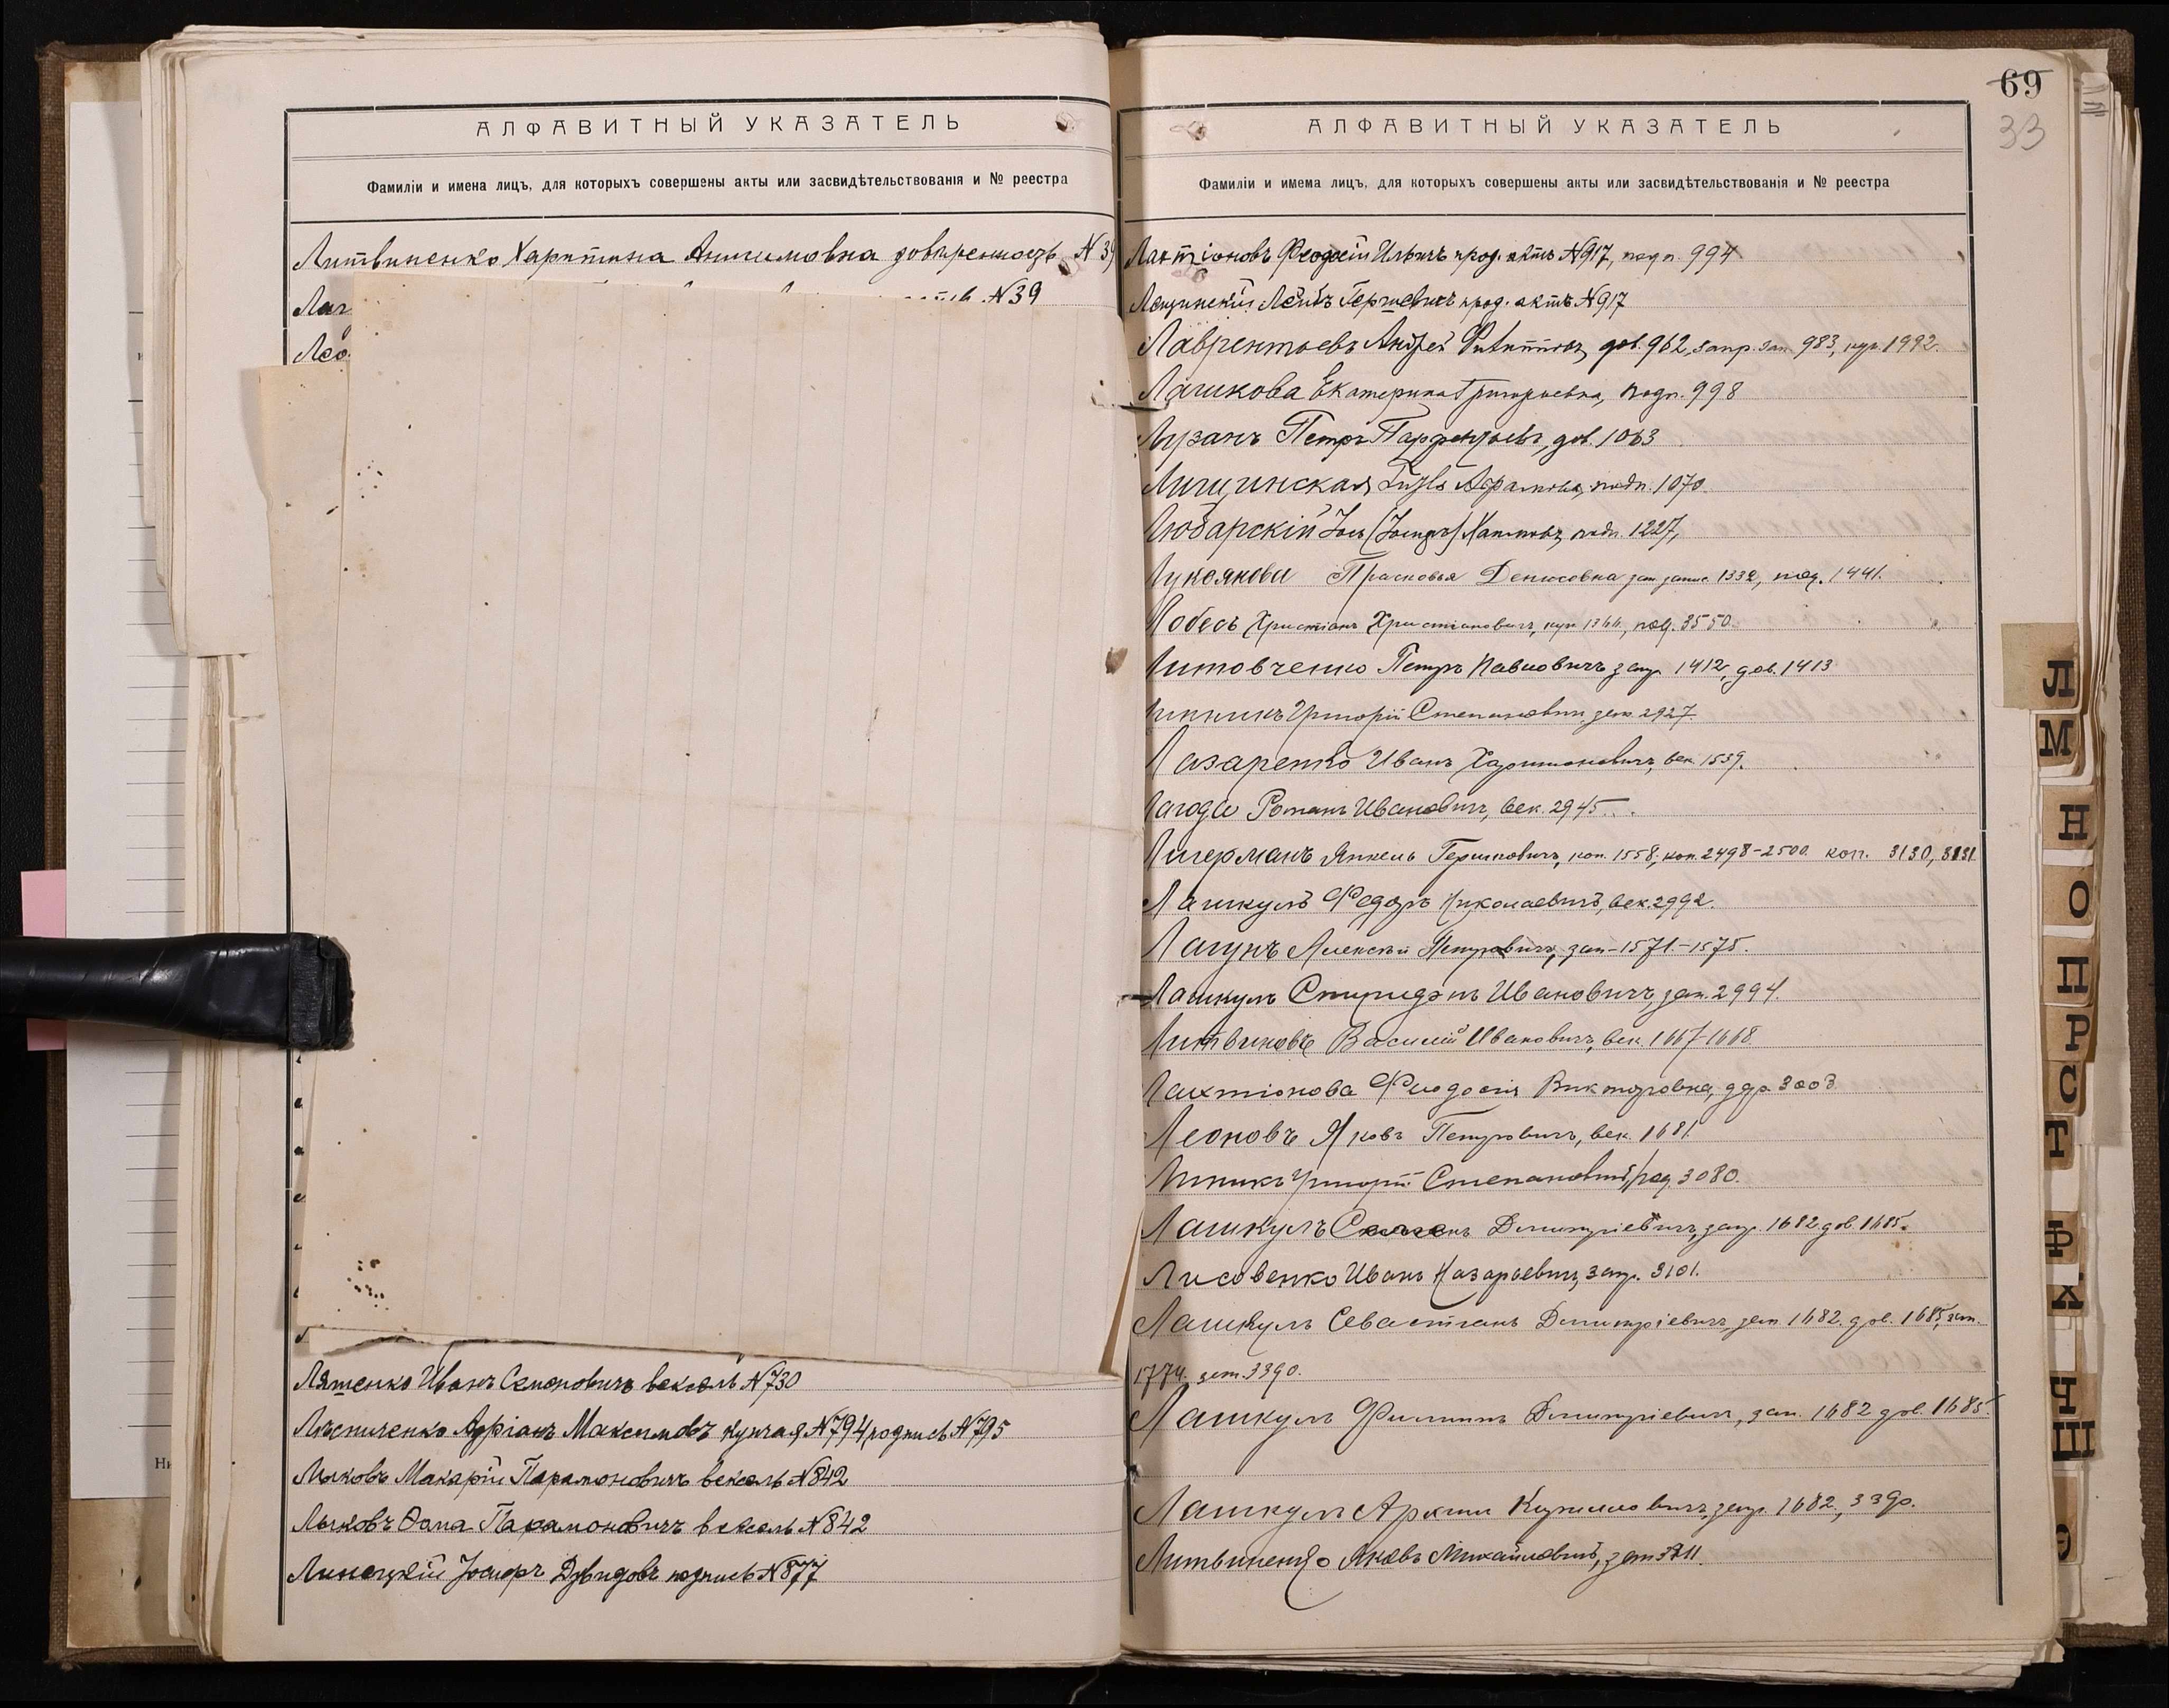 АЛФАВИТНЫЙ УКАЗАТЕЛЬ
Фамиліи и имена лицъ, для которыхъ совершены акты или засвидѣтельствованія и № реестра
Литвиненко Харитина Анисимовна довѣренность N 39
N 39
Лео
Ляшенко Иванъ Семоновичъ вексель N 730
Адріанъ Максимовъ купчая N 794 подпись N 795
Лыковъ Макарій Парамоновичъ вексель N 842
Лыковъ Ѳома Парамоновичъ вексель N 842
Линецкій Іосифъ Дувидовъ подпись N 877
69
33
АЛФАВИТНЫЙ УКАЗАТЕЛЬ
Фамиліи и имема лицъ, для которыхъ совершены акты или засвидѣтельствованія и № реестра
Лактіоновъ Феодосій Ильичъ прод. актъ N 917, подп. 994
Лещинскій Лейбъ Гершевичъ прод. актъ N 917
Лаврентьевъ Андрей дов. 962, запр. зап. 983, куп. 1992.
Лашкова Екатерина Григорьевна, подп. 998
Лузанъ Петръ Парфентьевъ, дов. 1063
Лищинская подп. 1070.
Любарскій Іось (Іосифъ) подп. 1227,
Лукьянова Прасковья Денисовна зап. 1332, под. 1441.
Лобесъ Христіанъ Христіановичъ, куп. 1366, под. 3550.
Литовченко Петръ Павловичъ запр. 1412, дов. 1413
Липникъ Григорій Степановичъ зап. 2927.
Лазаренко Иванъ Харитоновичъ, век. 1539.
Лагода Романъ Ивановичъ, век. 2945.
Лигерманъ Янкель Гершковичъ, коп. 1558, коп. 2498-2500. коп. 3130, 3131
Лашкулъ Федоръ Николаевичъ, век. 2992.
Лагунъ Алексѣй Петровичъ, зап. 1571.-1575.
Лашкулъ Спиридонъ Ивановичъ, зап. 2994.
Литвиновъ Василій Ивановичъ, век. 1667-1668
Лахтіонова Феодосія Викторовна, дов. 3003
Леоновъ Яковъ Петровичъ, век. 1681.
Липникъ Григорій Степановичъ, 3080.
Лашкулъ Семенъ Дмитріевичъ, запр. 1682. дов. 1685.
Лисовенко Иванъ Назарьевичъ, запр. 3101.
Лашкулъ Севастіанъ Дмитріевичъ, зап. 1682. дов. 1685, зап.
1774. зап. 3390.
Лашкулъ Филиппъ Дмитріевичъ, зап. 1682 дов. 1685.
Лашкулъ Архипъ Кирилловичъ, запр. 1682, 3390.
Литвиненко Яковъ Михайловичъ, зап.
Л
М
Н
О
П
Р
С
Т
Ф
Х
Ч
Ш
Э